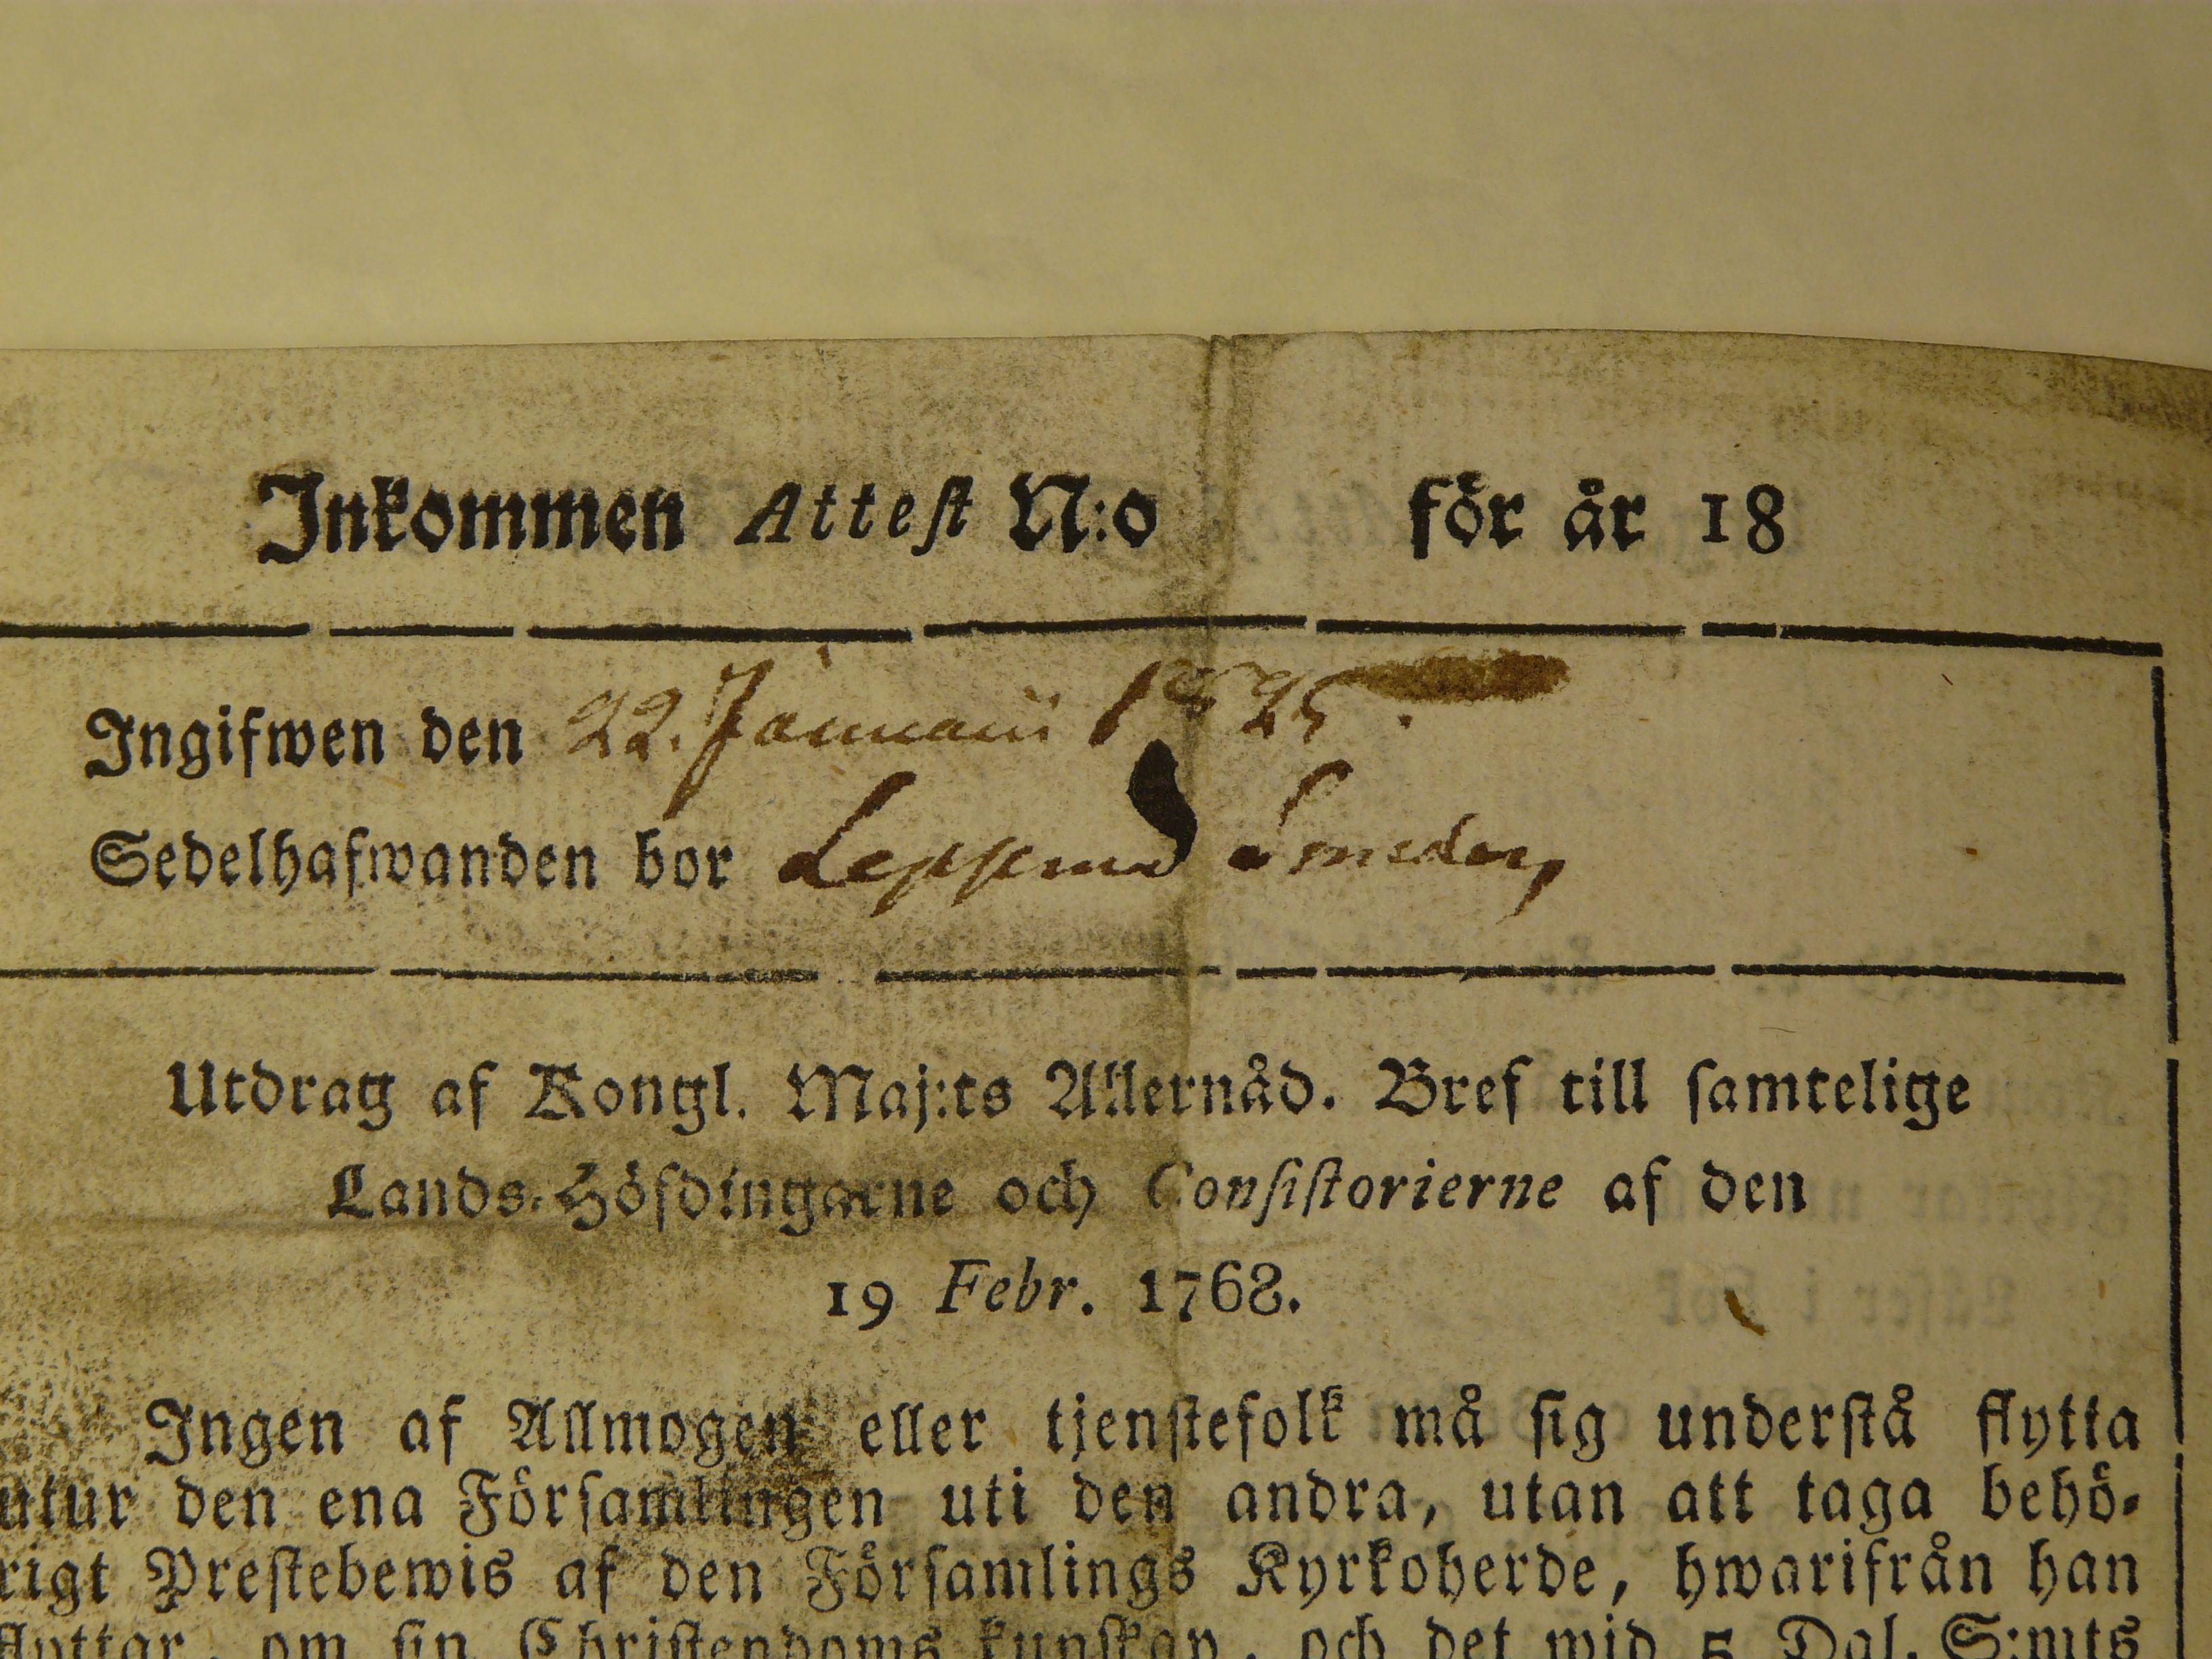 Inkommen Attest N:o för år 18
Ingifwen den 22. Januarii 1825.
Sedelhafwanden bor
Utdrag af Kongl. Maj:ts Allernåd. Bref till samtelige
Lands-Höfdingarne och Consistorierne af den
19 Febr. 1768.
Ingen af Allmogen eller tjenstefolk må sig understå flytta
utur den ena Församlingen uti den andra, utan att taga behö-
rigt Prestebewis af den Församlings Kyrkoherde, hwarifrån han
flyttar, om sin Christendoms kunskap, och det wid 5 Dal. S:mts